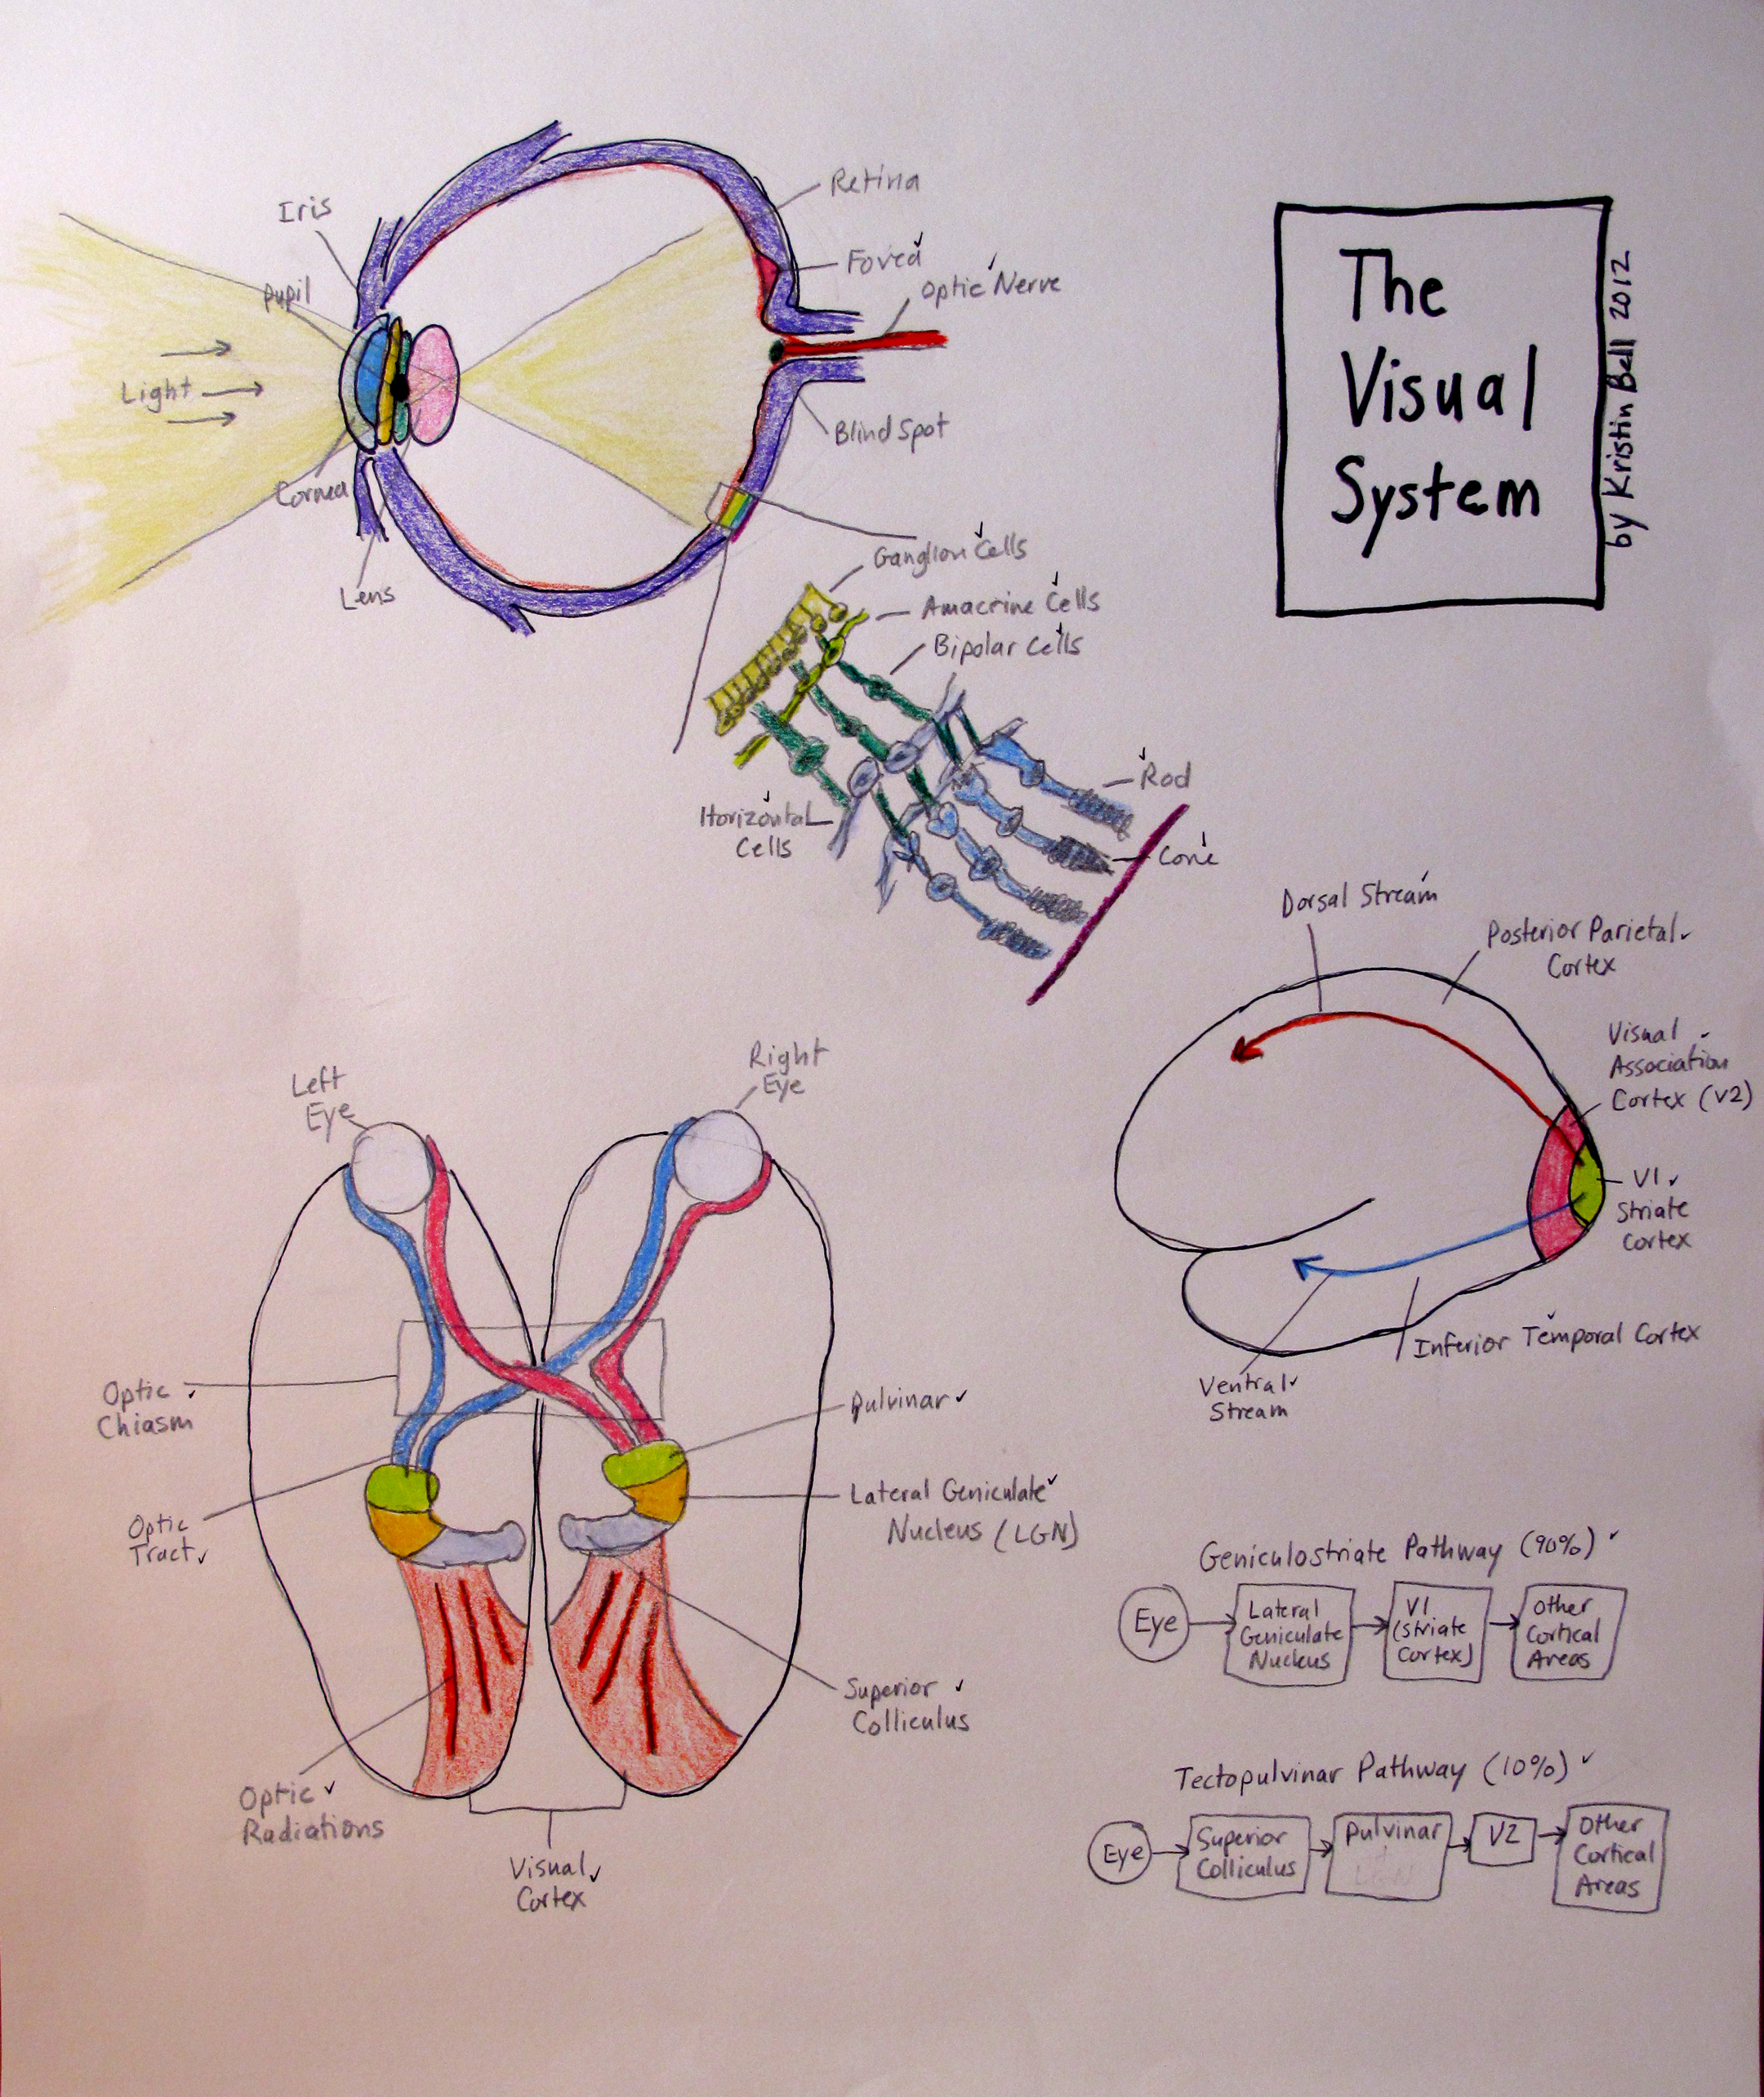 The
Visual
System
by Kristin Bell 2012
Iris
Pupil
Light
Cornea
Lens
Retina
Fovea
Optic Nerve
Blind Spot
Ganglion Cells
Amacrine Cells
Bipolar Cells
Horizontal
Cells
Rod
Cone
Dorsal Stream
Posterior Parietal
Cortex
Visual
Association
Cortex (V2)
V1
Striate
Cortex
Inferior Temporal Cortex
Ventral
Stream
Left
Eye
Right
Eye
Optic
Chiasm
Optic
Tract
Pulvinar
Lateral Geniculate
Nucleus (LGN)
Superior
Colliculus
Optic
Radiations
Visual
Cortex
Geniculostriate Pathway (90%)
Eye
Lateral
Geniculate
Nucleus
V1
(Striate
Cortex)
Other
Cortical
Areas
Tectopulvinar Pathway (10%)
Eye
Superior
Colliculus
Pulvinar
LGN
V2
Other
Cortical
Areas